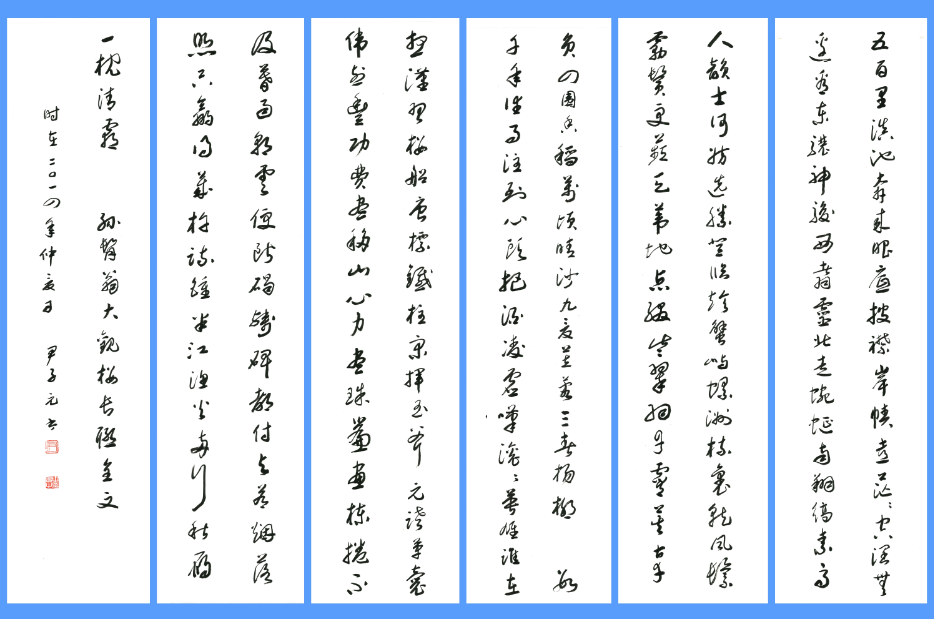 五百里滇池奔来眼底披襟岸帻喜茫茫空阔無
边看东骧神骏西翥靈北走蜿蜒南翔缟素高
人韵士何妨选胜登临趁蟹屿螺洲梳裹就风鬟
雾鬓更蘋天苇地点缀些翠羽丹霞莫辜
负四围香稻万顷晴沙九夏芙蓉三春杨柳 数
千年往事注到心头把酒凌虚叹滚滚英雄谁在
想汉习楼船唐标铁柱宋挥玉斧元跨革囊
伟烈丰功费尽移山心力尽珠帘画栋捲不
及暮雨朝云便断碣残碑都付与苍烟落
照只赢得几杵疏钟半江渔火两行秋雁
一枕清霜 孙髯翁大观楼长联全文
时在二〇一四年仲夏月 尹子元书